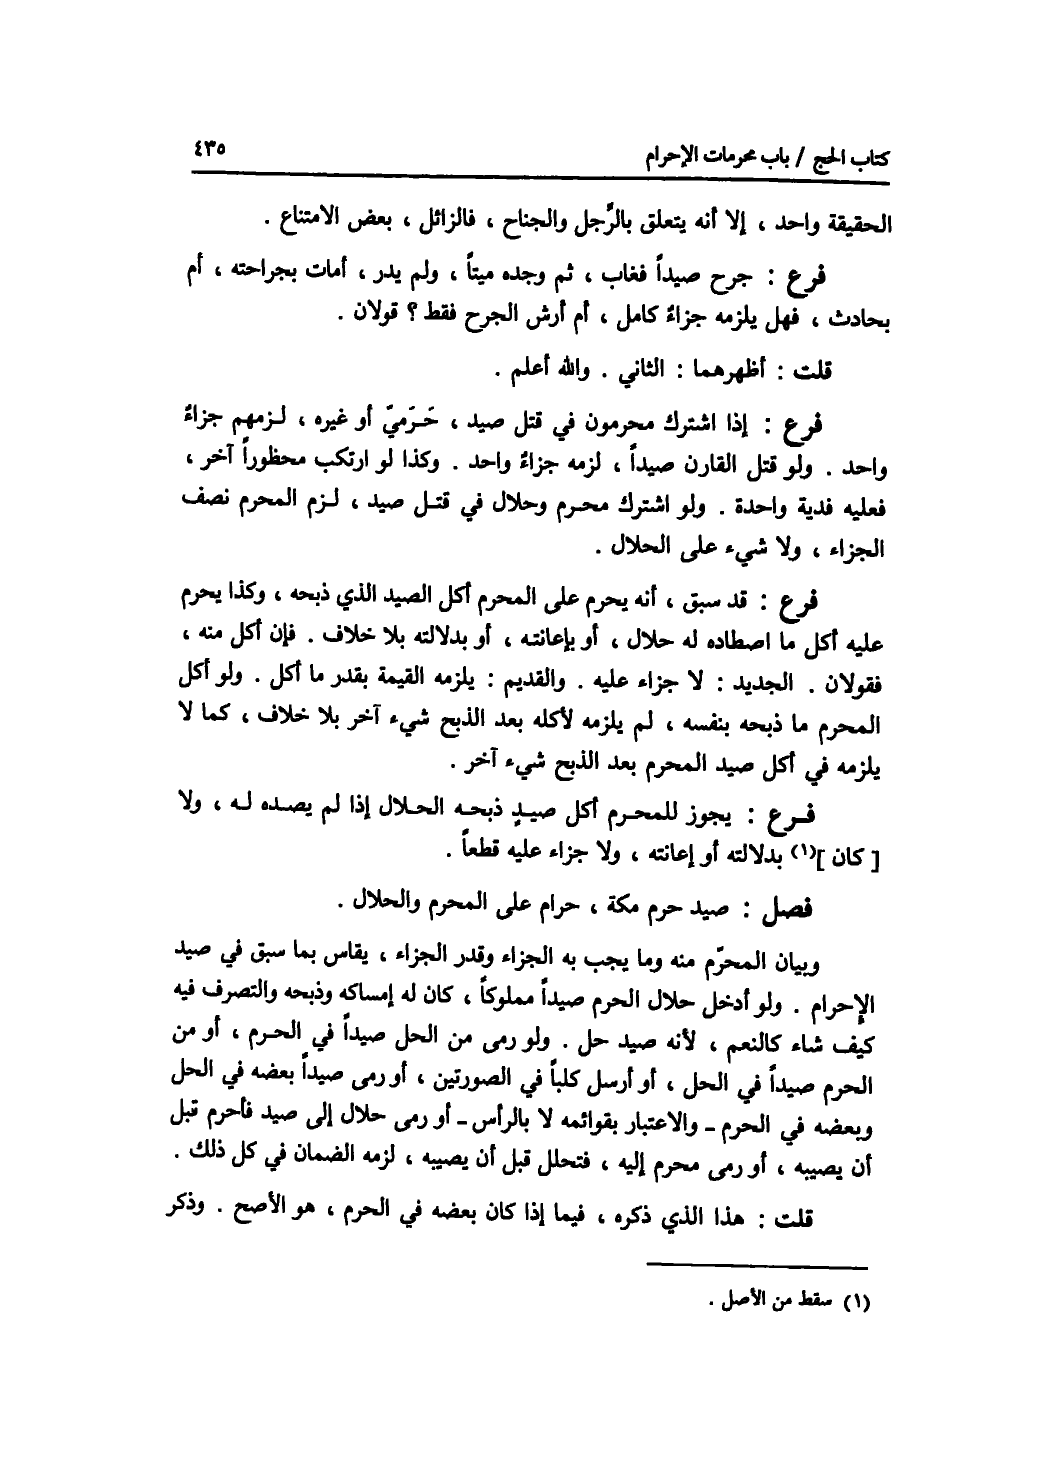 كتاب الحج / باب محرمات الإحرام ٤٣٥
الحقيقة واحد ، إلا أنه يتعلق بالرِّجل والجناح ، فالزائل ، بعض الامتناع .
فرع : جرح صيداً فغاب ، ثم وجده ميتاً ، ولم يدر ، أمات بجراحته ، أم
بحادث ، فهل يلزمه جزاءٌ كامل ، أم أرش الجرح فقط ؟ قولان .
قلت : أظهرهما : الثاني . والله أعلم .
فرع : إذا اشترك محرمون في قتل صيد ، حَرَميّ أو غيره ، لزمهم جزاءٌ
واحد . ولو قتل القارن صيداً ، لزمه جزاءٌ واحد . وكذا لو ارتكب محظوراً آخر ،
فعليه فدية واحدة . ولو اشترك محرم وحلال في قتل صيد ، لزم المحرم نصف
الجزاء ، ولا شيء على الحلال .
فرع : قد سبق ، أنه يحرم على المحرم أكل الصيد الذي ذبحه ، وكذا يحرم
عليه أكل ما اصطاده له حلال ، أو بإعانته ، أو بدلالته بلا خلاف . فإن أكل منه ،
فقولان . الجديد : لا جزاء عليه . والقديم : يلزمه القيمة بقدر ما أكل . ولو أكل
المحرم ما ذبحه بنفسه ، لم يلزمه لأكله بعد الذبح شيء آخر بلا خلاف ، كما لا
يلزمه في أكل صيد المحرم بعد الذبح شيء آخر .
فرع : يجوز للمحرم أكل صيدٍ ذبحه الحلال إذا لم يصده له ، ولا
[ كان ](١) بدلالته أو إعانته ، ولا جزاء عليه قطعاً .
فصل : صيد حرم مكة ، حرام على المحرم والحلال .
وبيان المحرّم منه وما يجب به الجزاء وقدر الجزاء ، يقاس بما سبق في صيد
الإحرام . ولو أدخل حلال الحرم صيداً مملوكاً ، كان له إمساكه وذبحه والتصرف فيه
كيف شاء كالنعم ، لأنه صيد حل . ولو رمى من الحل صيداً في الحرم ، أو من
الحرم صيداً في الحل ، أو أرسل كلباً في الصورتين ، أو رمى صيداً بعضه في الحل
وبعضه في الحرم - والاعتبار بقوائمه لا بالرأس - أو رمى حلال إلى صيد فأحرم قبل
أن يصيبه ، أو رمى محرم إليه ، فتحلل قبل أن يصيبه ، لزمه الضمان في كل ذلك .
قلت : هذا الذي ذكره ، فيما إذا كان بعضه في الحرم ، هو الأصح . وذكر
(١) سقط من الأصل .